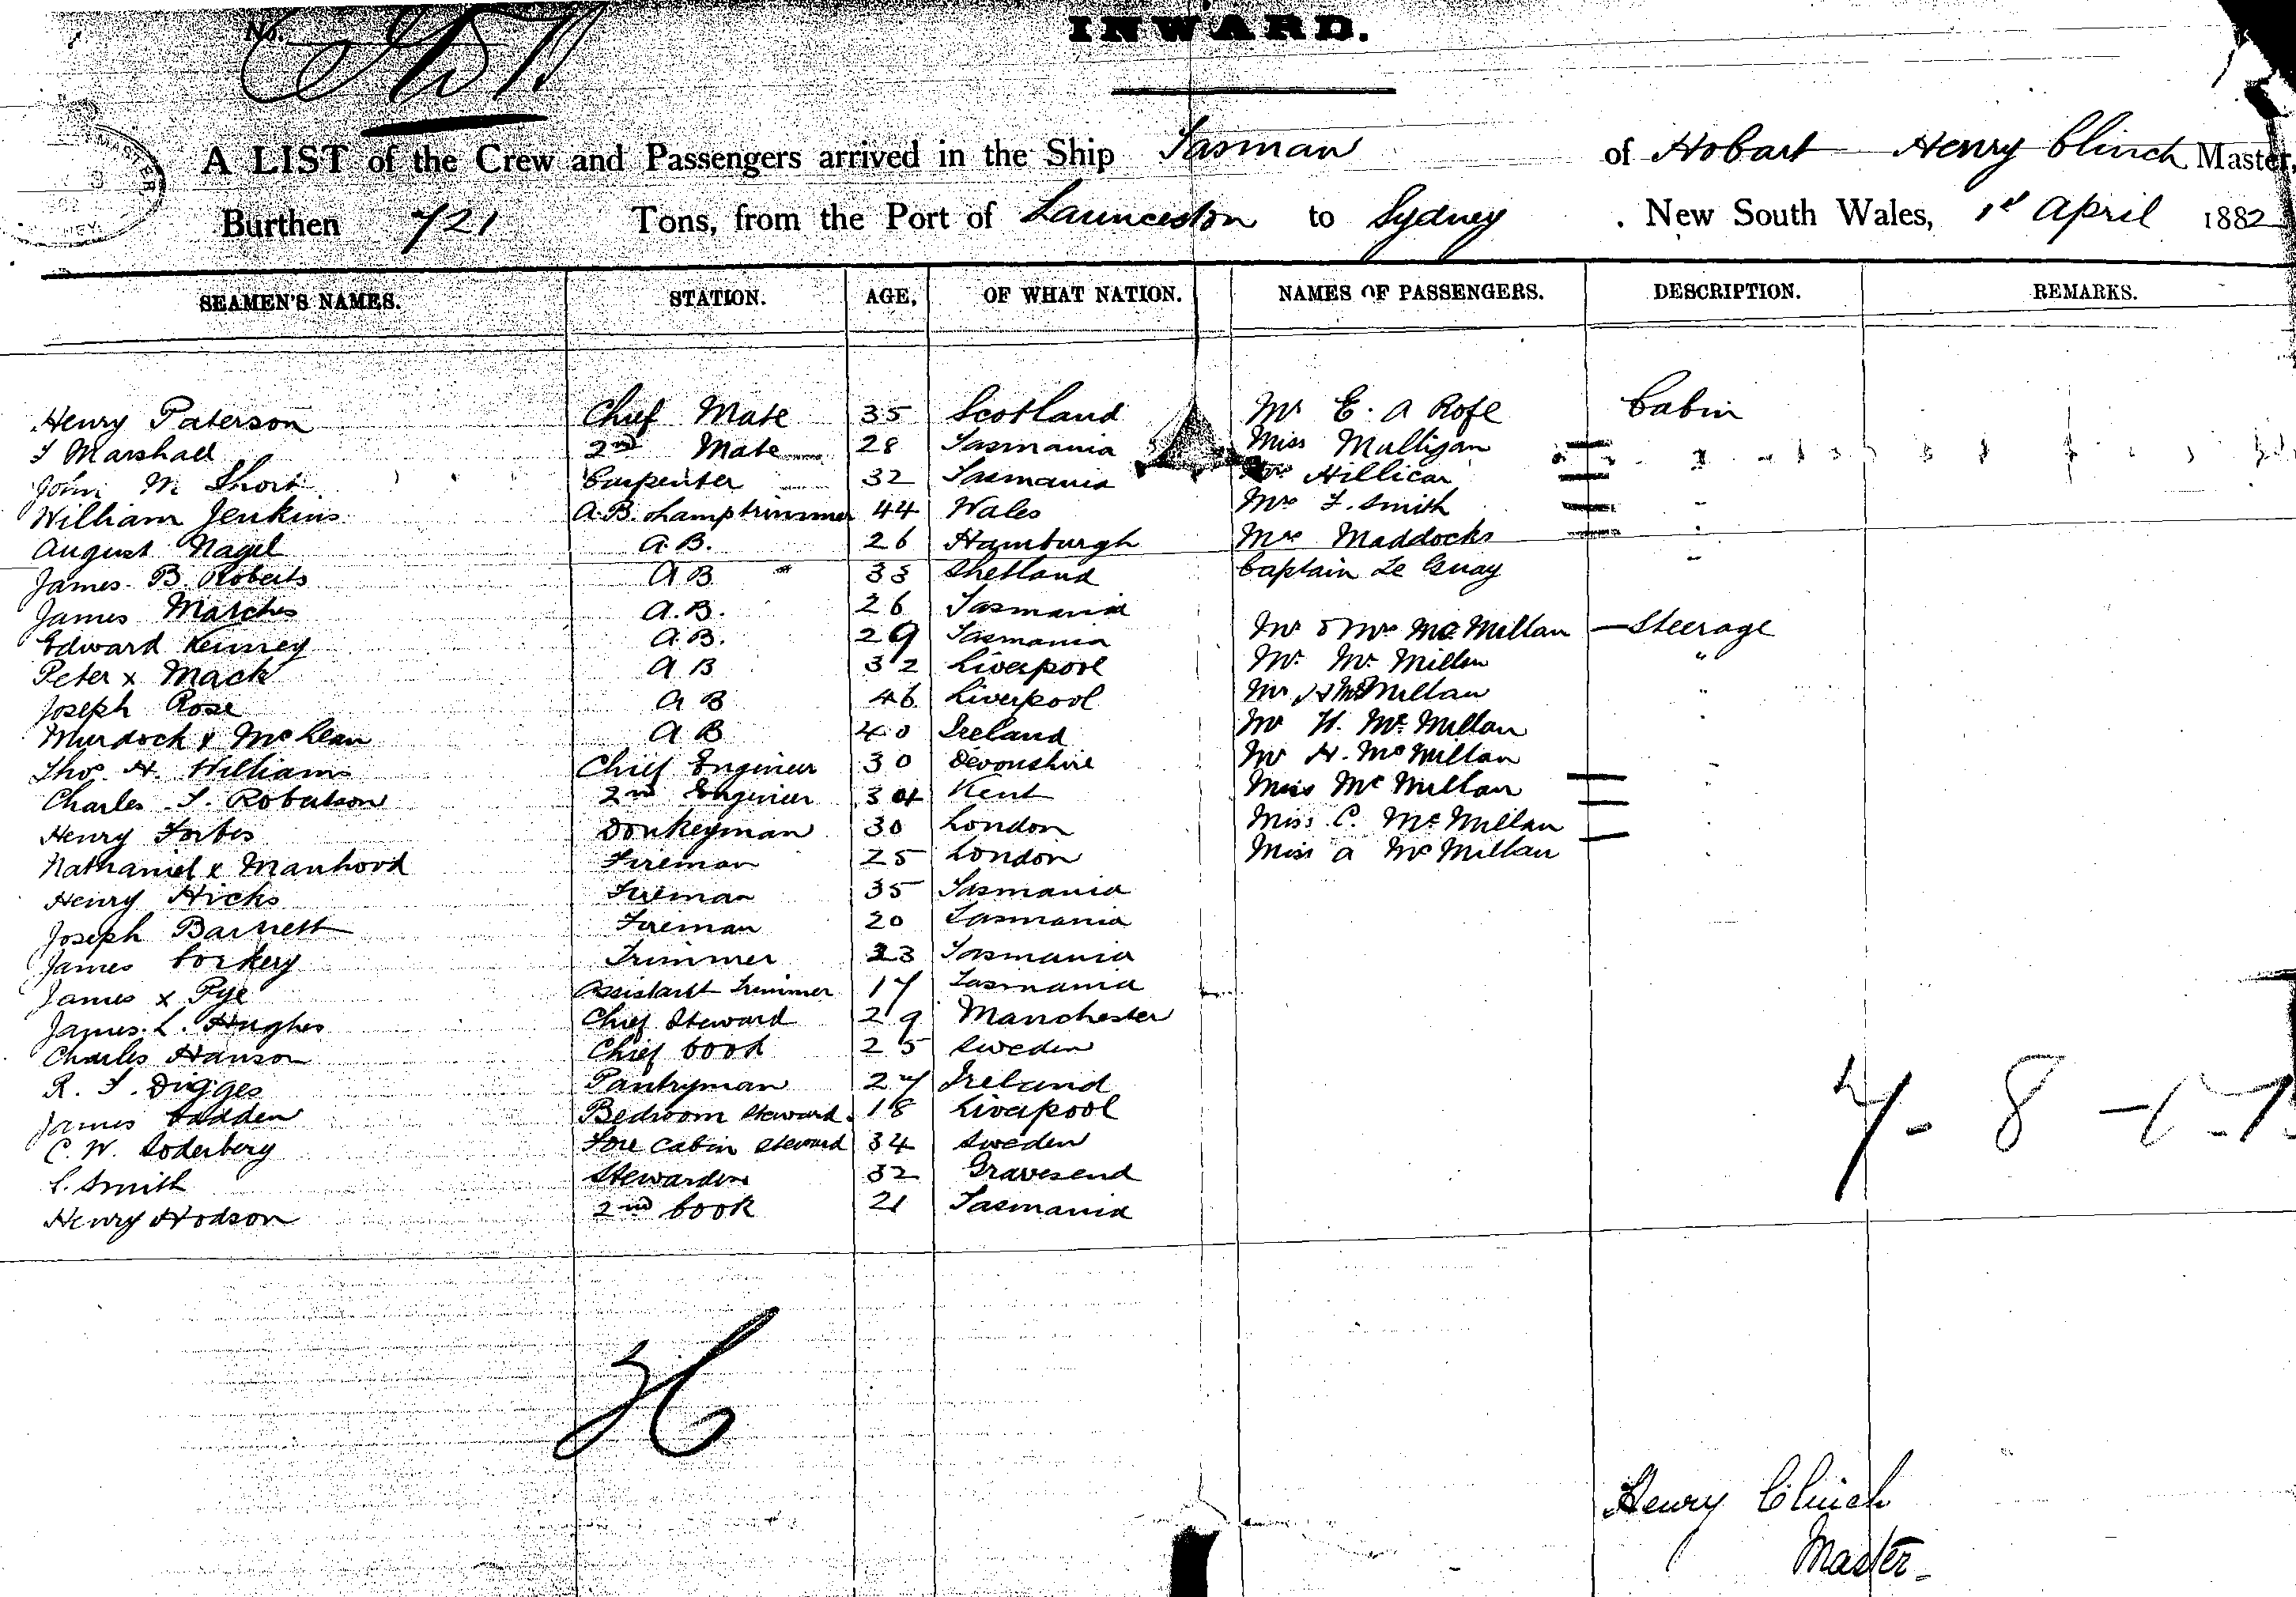 No.
INWARD.
A LIST of the Crew and Passengers arrived in the Ship Tasman of Hobart Henry Clinch Master,
Burthen 721 Tons, from the Port of Launceston to Sydney . New South Wales, 1st April 1882
SEAMEN'S NAMES. STATION. AGE, OF WHAT NATION. NAMES OF PASSENGERS. DESCRIPTION. REMARKS.
Henry Paterson Chief Mate 35 Scotland Mr E. A Rofe Cabin
T Marshall 2nd Mate 28 Tasmania Miss Mulligan
John M Short Carpenter 32 Tasmania Hillicar
William Jenkins A.B. & Lamptrimmer 44 Wales Mrs F. Smith
August Nagel A.B. 26 Hamburgh Mrs Maddocks
James B. Roberts A B 33 Shetland Captain Le Quay
James Marches A.B. 26 Tasmania
Edward Kenney A.B. 29 Tasmania Mr & Mrs McMillan — Steerage
Peter x Mack A B 32 Liverpool Mr. Mc Millan "
Joseph Rose A B 46 Liverpool Mr McMillan "
Murdock x McLean A B 40 Ireland Mr H. Mc Millan
Thos. H. Williams Chief Engineer 30 Devonshire Mr H. McMillan
Charles T. Robertson 2nd Engineer 34 Kent Miss Mc Millan
Henry Forbes Donkeyman 30 London Miss C. Mc Millan
Nathaniel x Manhood Fireman 25 London Miss A McMillan
Henry Hicks Fireman 35 Tasmania
Joseph Barnett Fireman 20 Tasmania
James Corkery Trimmer 23 Tasmania
James x Pye Assistant Trimmer 17 Tasmania
James L. Hughes Chief Steward 29 Manchester
Charles Hanson Chief Cook 25 Sweden
R. T. Digges Pantryman 27 Ireland
James Cadden Bedroom Steward 18 Liverpool
C. W. Soderberg Fore Cabin Steward 34 Sweden
S. Smith Stewardess 32 Gravesend
Henry Hodson 2nd Cook 21 Tasmania
7 - 8 -
Henry Clinch
Master